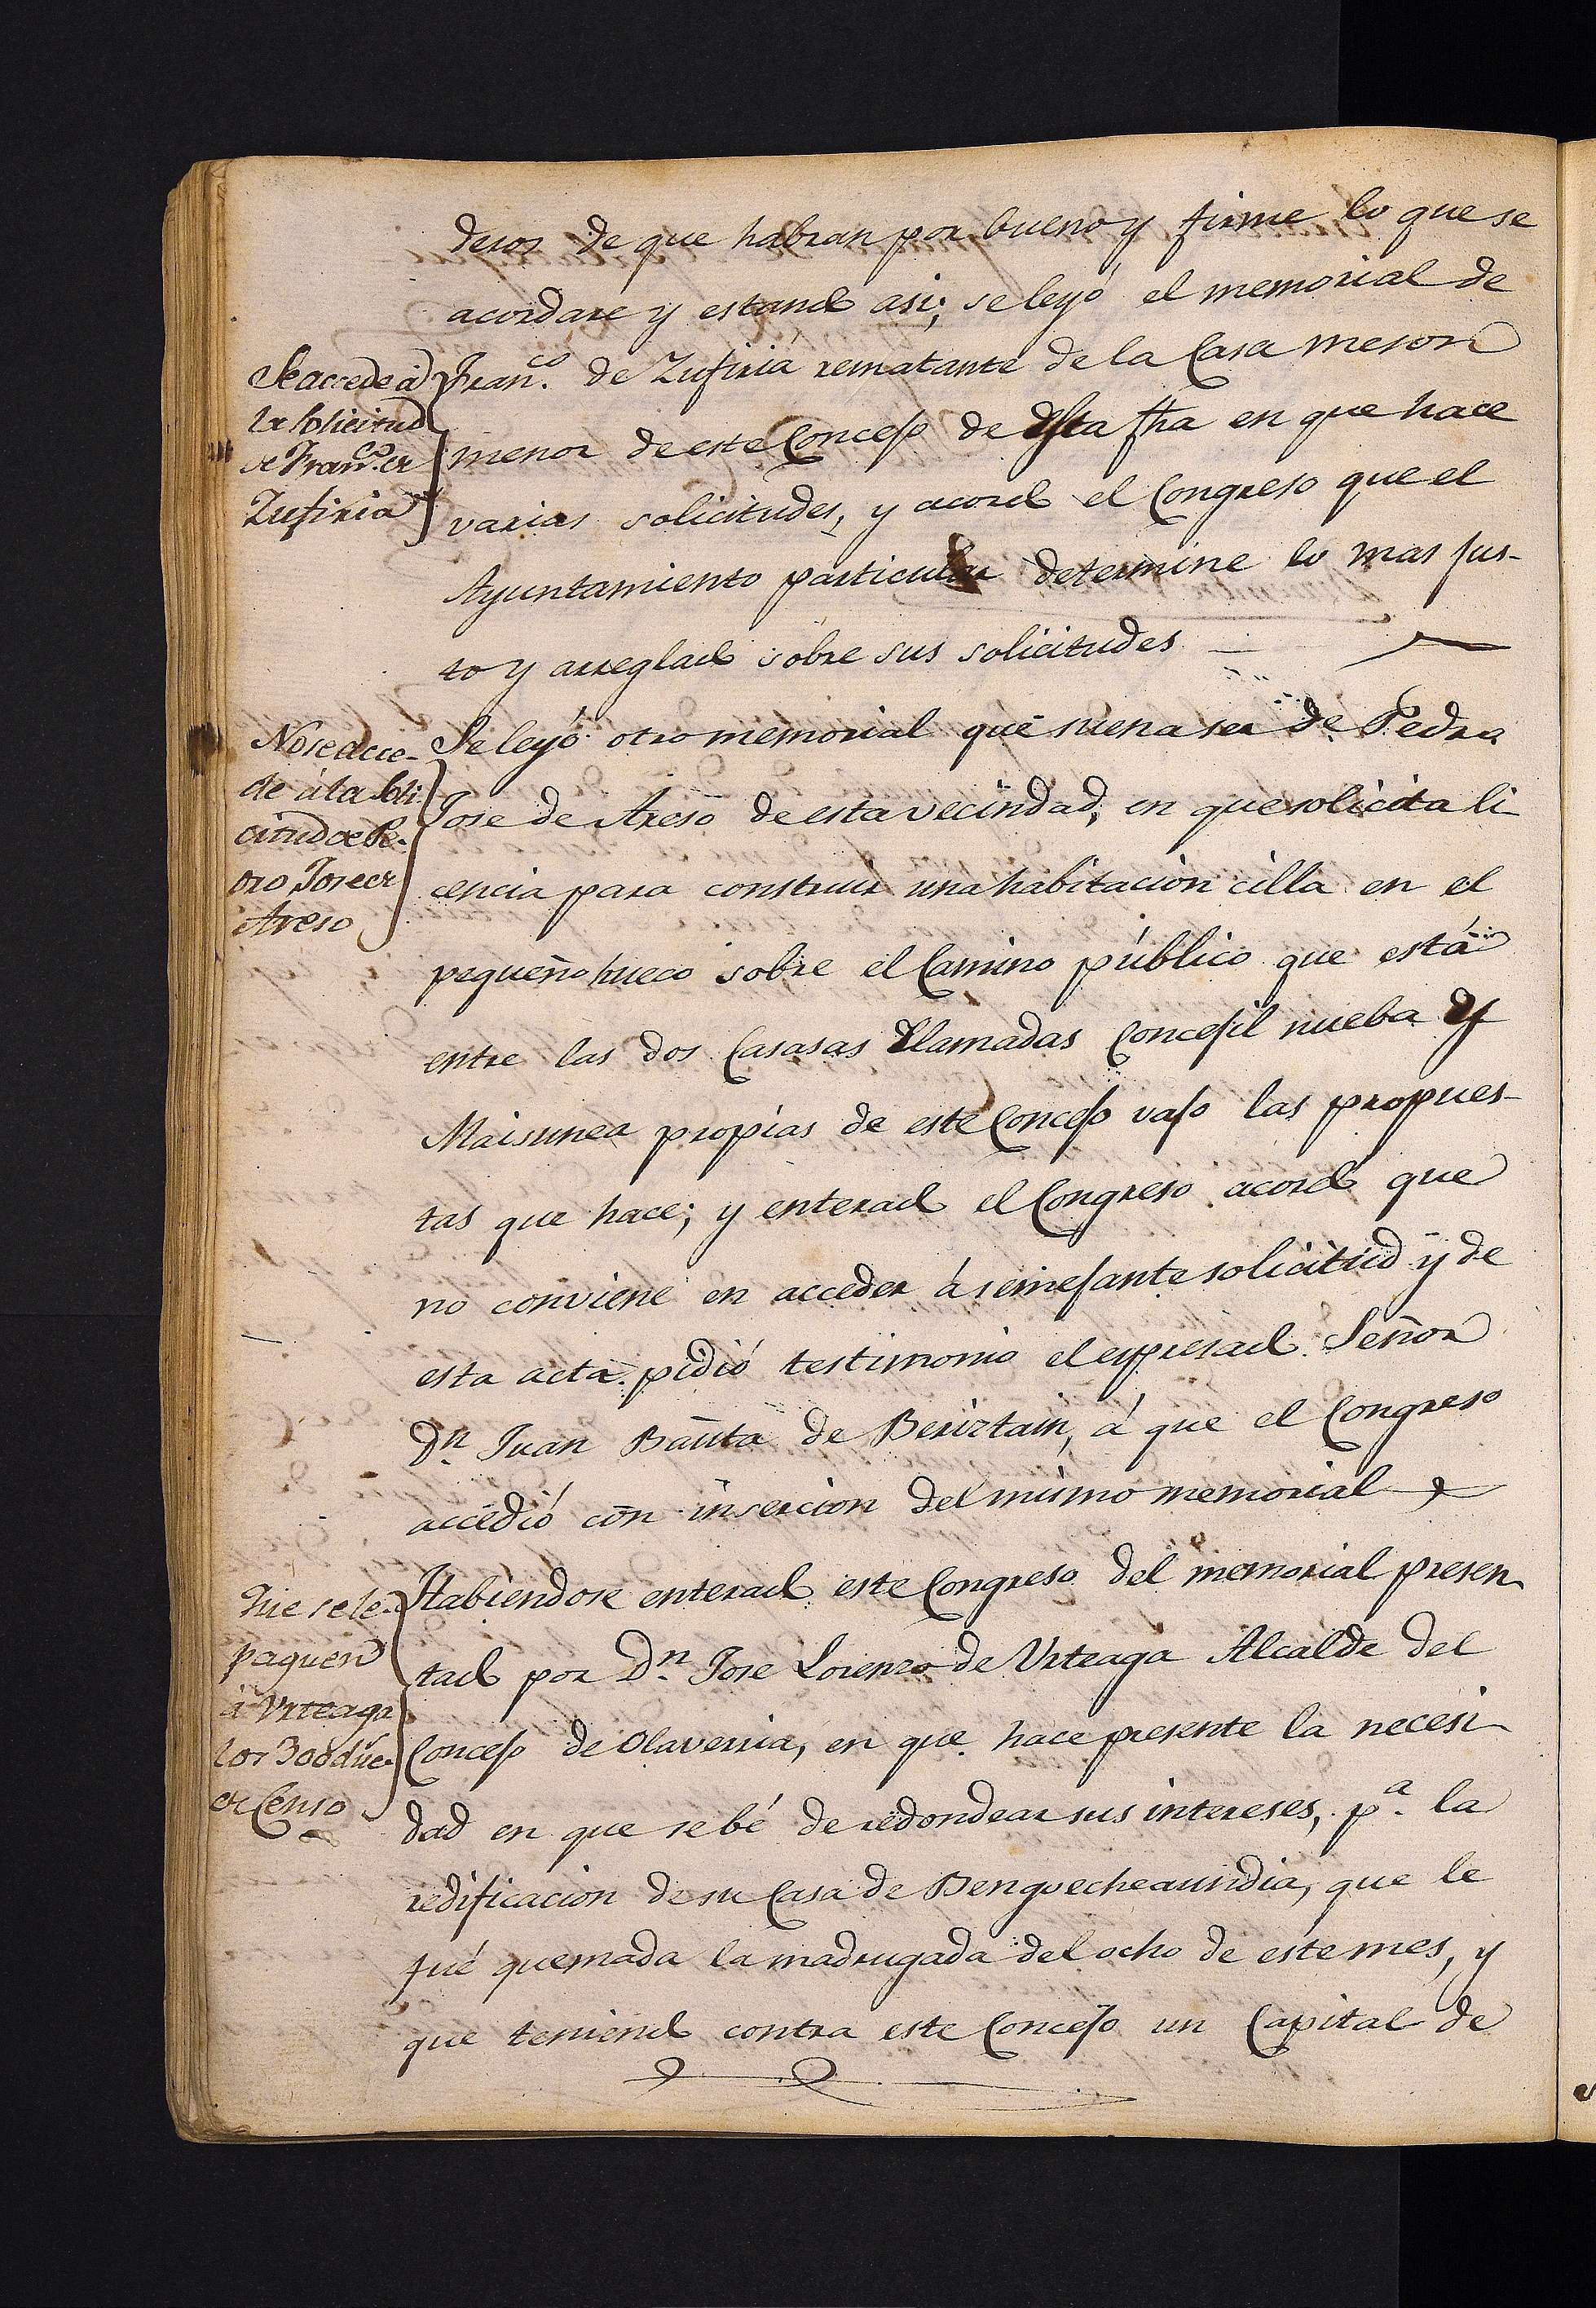 deros de que habran por bueno y firme lo que se
acordare y estando asi, se leyó el memorial de
Se accede à
la solicitud
de Fran.co de
Zufiria
Fran.co de Zufiria rematante de la Casa meson
menor de este Concejo de esta fha en que hace
varias solicitudes, y acordó el Congreso que el
Ayuntamiento particular determine lo mas jus-
to y arreglado sobre sus solicitudes
No se acce-
de à la soli-
citud de Pe-
dro Jose de
Areso
Se leyó otro memorial que suena ser de Pedro
Jose de Areso de esta vecindad, en que solicita li
cencia para construir una habitacion cilla en el
pequeño hueco sobre el Camino público que está
entre las dos Casasas llamadas Concejil nueba y
Maisunea propias de este Concejo vajo las propues-
tas que hace; y enterado el Congreso acordó que
no conviene en acceder à semejante solicitud y de
esta acta pidió testimonio el expresado Señor
Dn. Juan Bauta de Beriztain, á que el Congreso
accedió con insercion del mismo memorial
Que se le
paguen
à Urteaga
los 300 duc.
de Censo
Habiendose enterado este Congreso del memorial presen
tado por Dn. Jose Lorenzo de Urteaga Alcalde del
Concejo de Olaverria, en que hace presente la necesi
dad en que se bé de redondear sus intereses, pa. la
redificacion de su Casa de Benguecheaundia, que le
fué quemada la madrugada del ocho de este mes, y
que teniendo contra este Concejo un Capital de